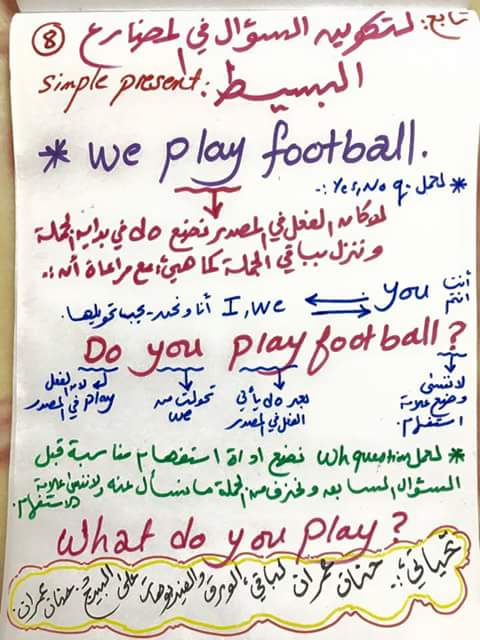 تابع: لتكوين السؤال في المضارع
8
البسيط: simple present
* We play football.
* لعمل Yes, No q. :-
لو كان الفعل في المصدر نضع do في بداية الجملة
وننزل بباقي الجملة كما هي، مع مراعاة أنه :-
أنت
أنتم
you ⇌ I, we أنا ونحن - يجب تحويلها.
Do you play football?
لأن الفعل play في المصدر
تحولت من we
بعد do يأتي الفعل في المصدر
لا ننسى وضع علامة استفهام.
* لعمل Wh question نضع اداة استفهام مناسبة قبل
السؤال السابق ونحذف من الجملة ما نسأل عنه ولا ننسى علامة الاستفهام.
What do you play?
تحياتي :- حنان عمران لباقي الورق والفيديوهات على البيدج: حنان عمران.